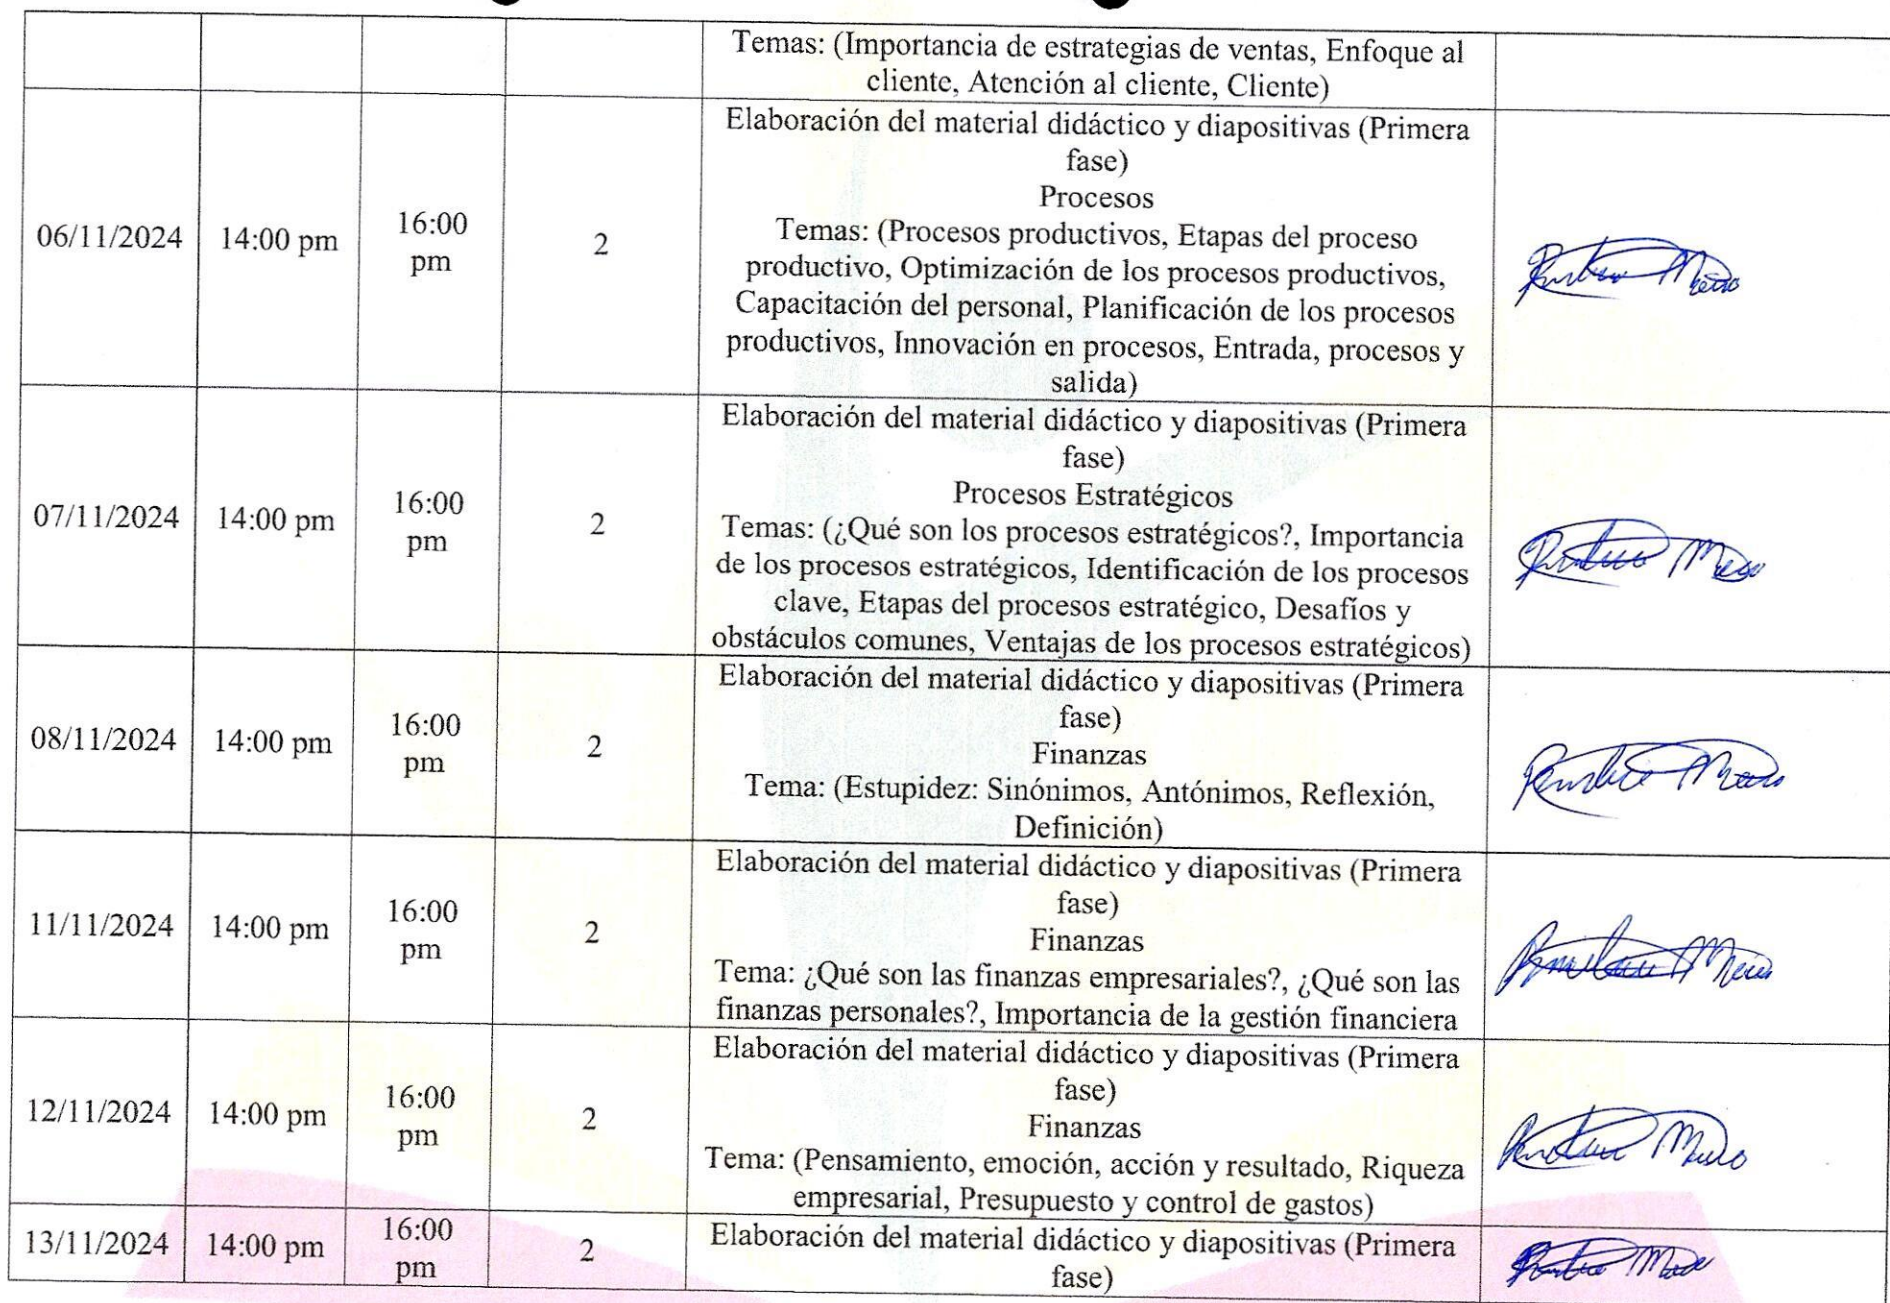 Temas: (Importancia de estrategias de ventas, Enfoque al
cliente, Atención al cliente, Cliente)
06/11/2024
14:00 pm
16:00
pm
2
Elaboración del material didáctico y diapositivas (Primera
fase)
Procesos
Temas: (Procesos productivos, Etapas del proceso
productivo, Optimización de los procesos productivos,
Capacitación del personal, Planificación de los procesos
productivos, Innovación en procesos, Entrada, procesos y
salida)
07/11/2024
14:00 pm
16:00
pm
2
Elaboración del material didáctico y diapositivas (Primera
fase)
Procesos Estratégicos
Temas: (¿Qué son los procesos estratégicos?, Importancia
de los procesos estratégicos, Identificación de los procesos
clave, Etapas del procesos estratégico, Desafíos y
obstáculos comunes, Ventajas de los procesos estratégicos)
08/11/2024
14:00 pm
16:00
pm
2
Elaboración del material didáctico y diapositivas (Primera
fase)
Finanzas
Tema: (Estupidez: Sinónimos, Antónimos, Reflexión,
Definición)
11/11/2024
14:00 pm
16:00
pm
2
Elaboración del material didáctico y diapositivas (Primera
fase)
Finanzas
Tema: ¿Qué son las finanzas empresariales?, ¿Qué son las
finanzas personales?, Importancia de la gestión financiera
12/11/2024
14:00 pm
16:00
pm
2
Elaboración del material didáctico y diapositivas (Primera
fase)
Finanzas
Tema: (Pensamiento, emoción, acción y resultado, Riqueza
empresarial, Presupuesto y control de gastos)
13/11/2024
14:00 pm
16:00
pm
2
Elaboración del material didáctico y diapositivas (Primera
fase)